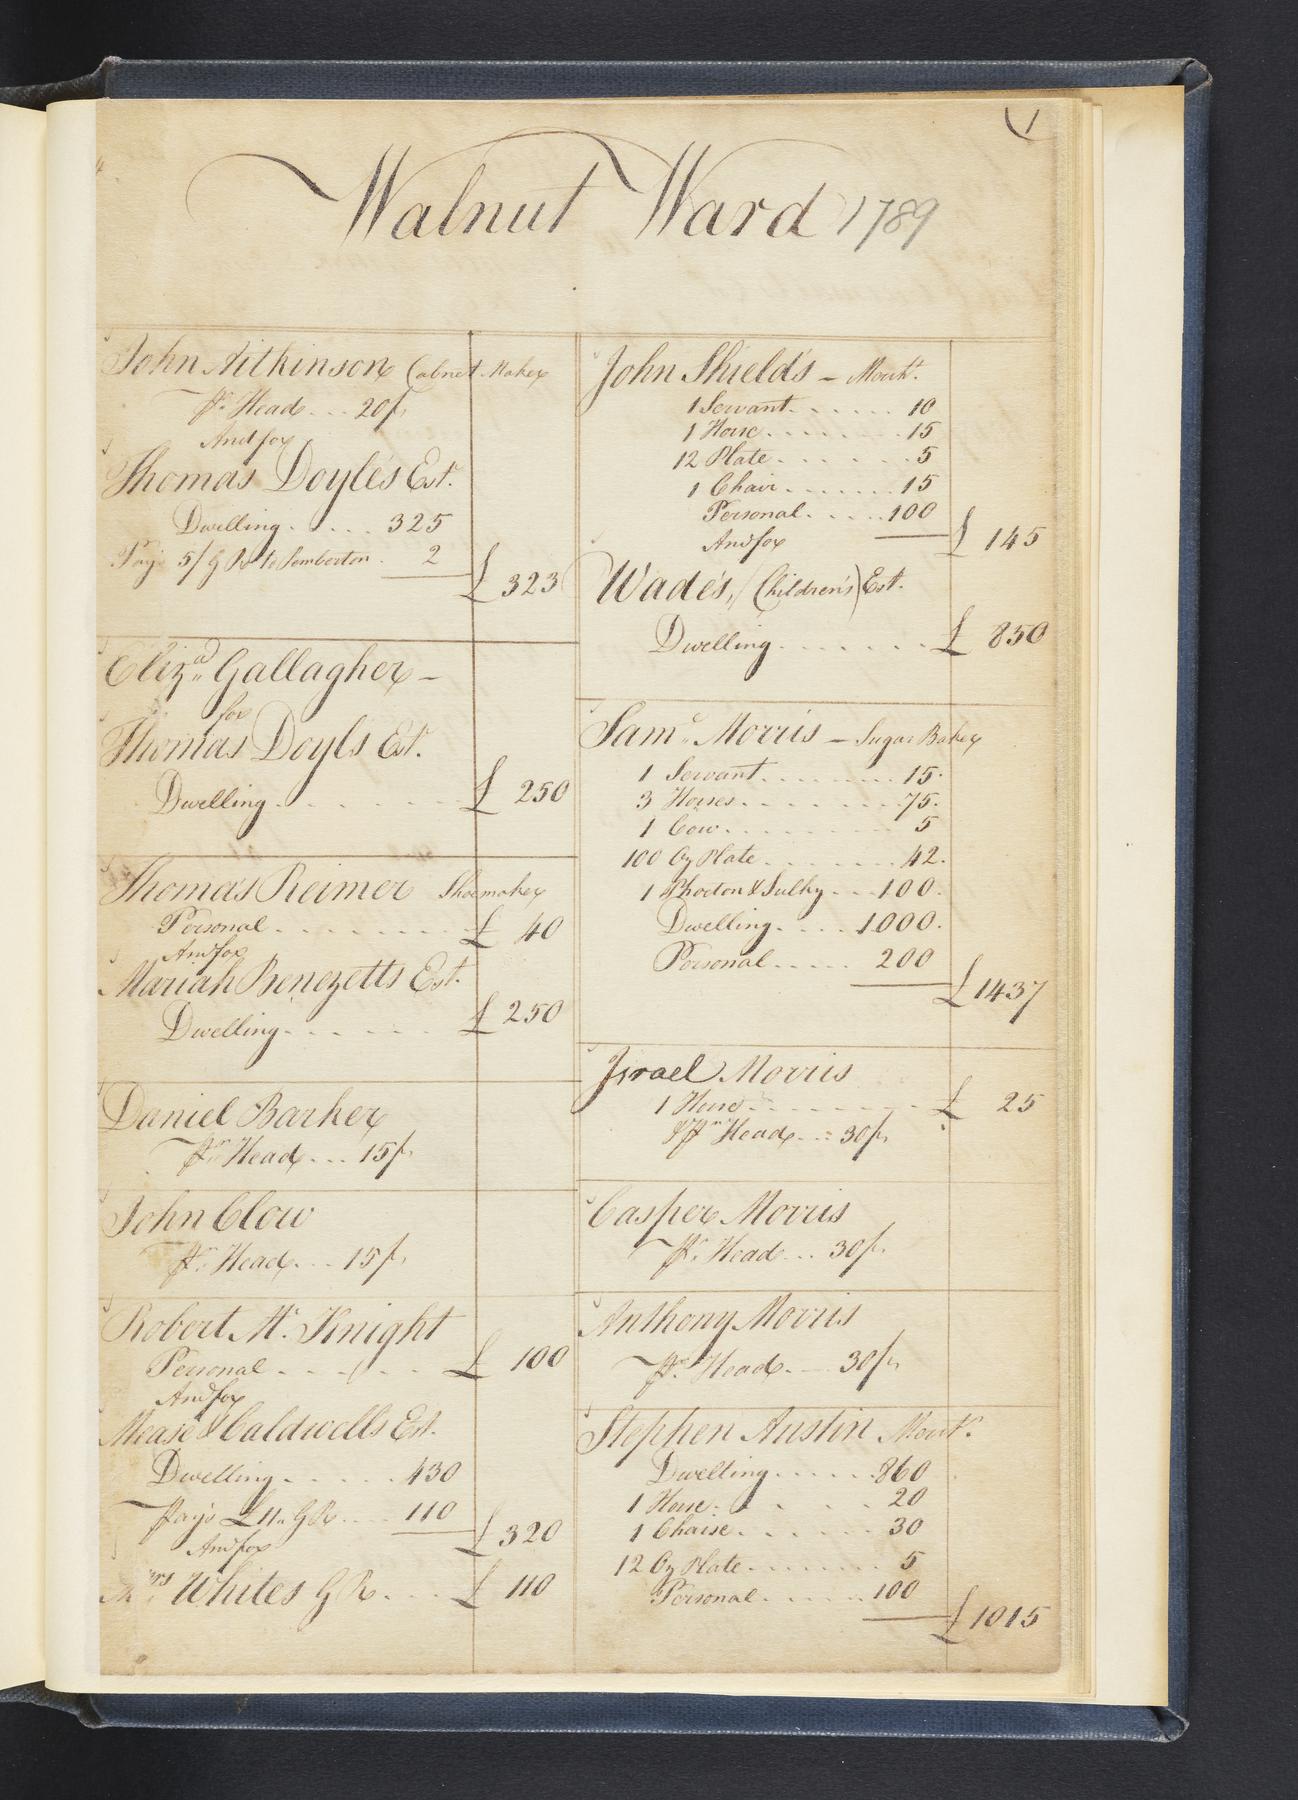 1
Walnut Ward 1789
John Aitkinson Cabnet Maker
Pr. Head . . . 20/.
And for
Thomas Doyles Est.
Dwelling . . . . 325
Pays 5/ G R to Pemberton . 2
£ 323
Eliza. Gallagher –
for
Thomas Doyls Est.
Dwelling . . . . . . £ 250
Thomas Reimer Shoemaker
Personal . . . . . . . £ 40
And for
Mariah Benezetts Est.
Dwelling . . . . . . £ 250
Daniel Barker
Pr. Head . . . 15/.
John Clow
Pr. Head . . . 15/.
Robert Mc. Knight
Personal . . . . . . £ 100
And for
Mease & Caldwells Est.
Dwelling . . . . . . 430
Pays £11.. G R . . . . 110
£ 320
And for
Mrs. Whites G R . . . . £ 110
John Shields – Mercht.
1 Servant . . . . . . 10
1 Horse . . . . . . . . 15
12 Plate . . . . . . . 5
1 Chair . . . . . . . 15
Personal . . . . . 100
£ 145
And for
Wade's, (Children's) Est.
Dwelling . . . . . . . £ 850
Saml. Morris – Sugar Baker
1 Servant . . . . . . . . 15.
3 Horses . . . . . . . . 75.
1 Cow . . . . . . . . . 5
100 Oz Plate . . . . . . . 42.
1 Phaeton & Sulky . . . 100.
Dwelling . . . . . 1000.
Personal . . . . . 200
£ 1437
Israel Morris
1 Horse . . . . . . . . . £ 25
& Pr. Head . . . 30/.
Casper Morris
Pr. Head . . . 30/.
Anthony Morris
Pr. Head . . . 30/.
Stephen Austin Mercht.
Dwelling . . . . . . 860
1 Horse . . . . . . 20
1 Chaise . . . . . . . 30
12 Oz Plate . . . . . . . 5
Personal . . . . . . 100
£ 1015